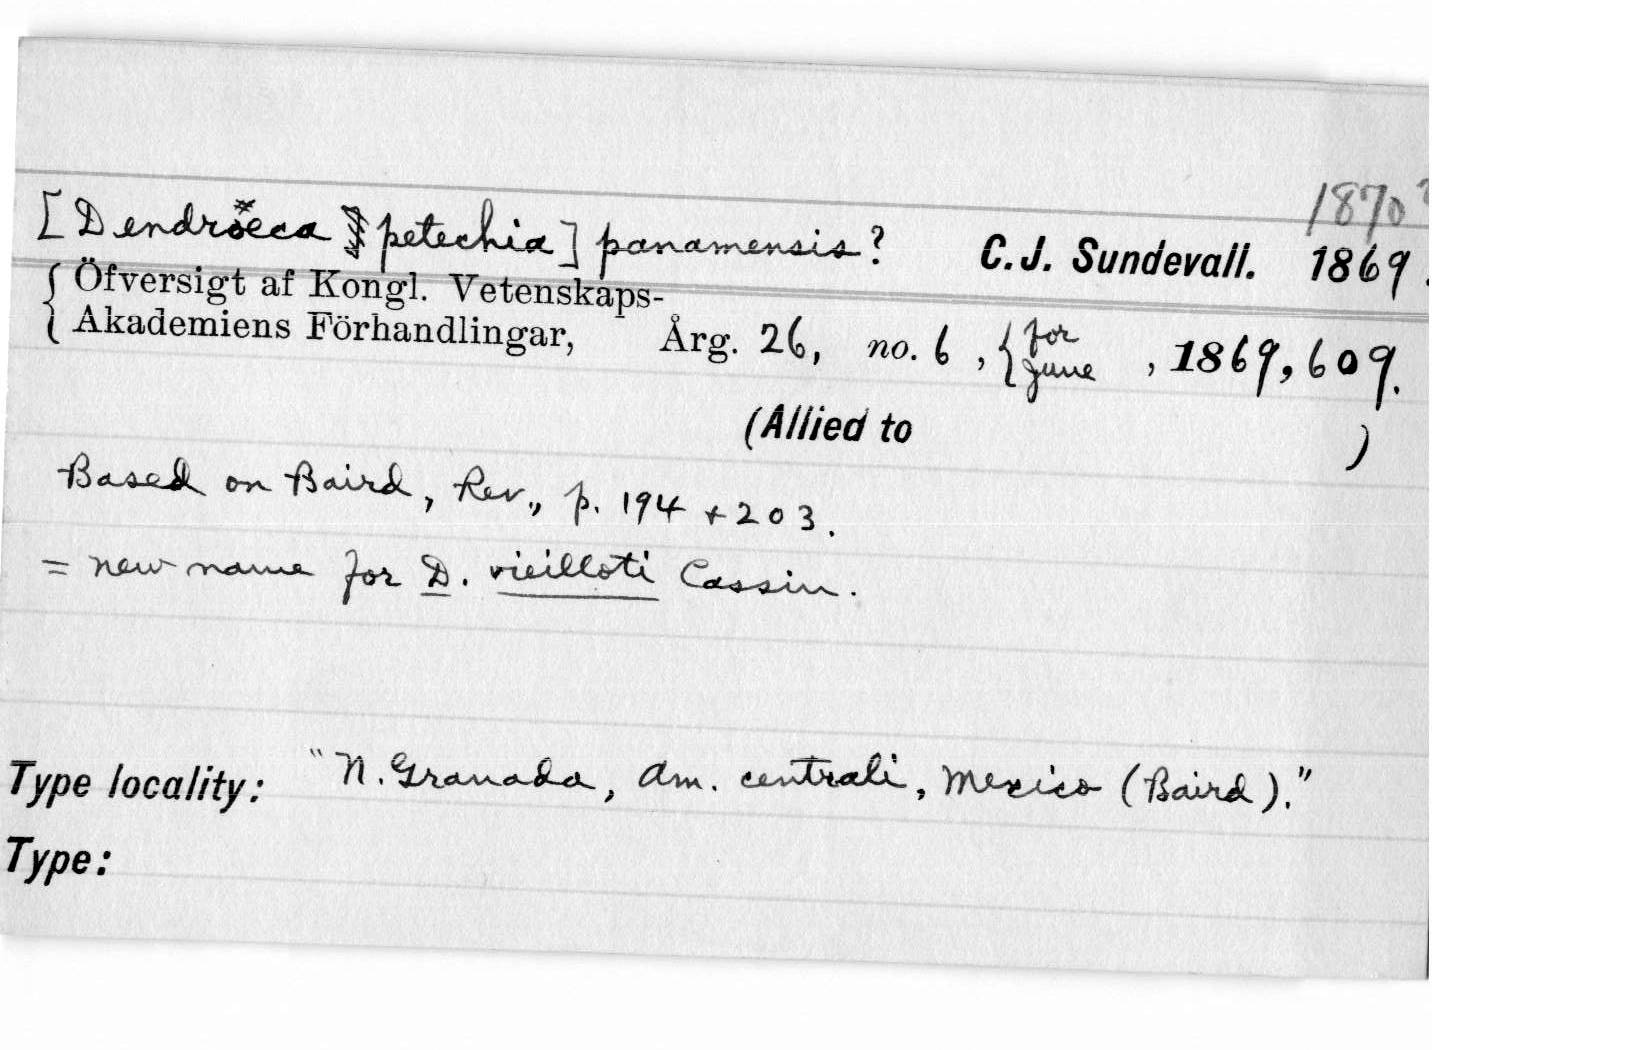 1870?
[Dendroeca petechia] panamensis? C. J. Sundevall. 1869.
{ Öfversigt af Kongl. Vetenskaps-
Akademiens Förhandlingar, Årg. 26, no. 6, { for June, 1869, 609.
(Allied to )
Based on Baird, Rev., p. 194 + 203.
= new name for D. vieilloti Cassin.
Type locality: "N. Granada, Am. centrali, Mexico (Baird)."
Type: